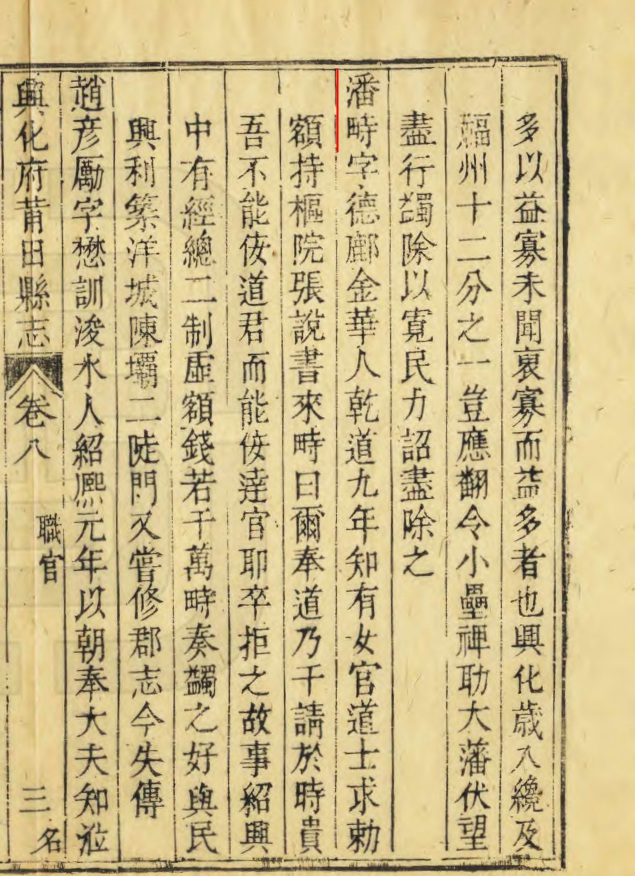 多以益寡未聞裒寡而益多者也興化歲入纔及
福州十二分之一豈應翻令小壘裨助大藩伏望
盡行蠲除以寛民力詔盡除之
潘時字德鄜金華人乾道九年知有女官道士求勅
額持樞院張說書來時曰爾奉道乃干請於時貴
吾不能佞道君而能佞達官耶卒拒之故事紹興
中有經總二制虛額錢若干萬時奏蠲之好與民
興利築洋城陳壩二陡門又嘗修郡志今失傳
趙彥勵字懋訓浚水人紹熙元年以朝奉大夫知涖
興化府莆田縣志 卷八 職官 三 名